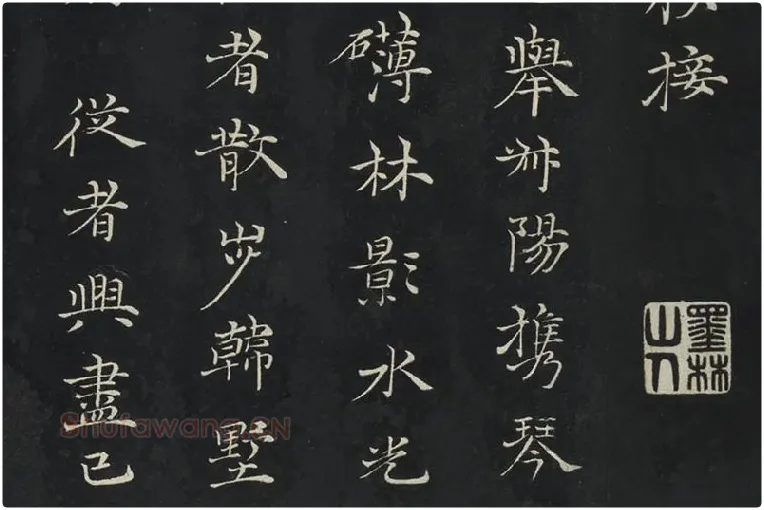 接
舉艸陽攜琴
礴林影水光
者散步韓墅
從者興盡已
墨林山人
Shufawang.CN